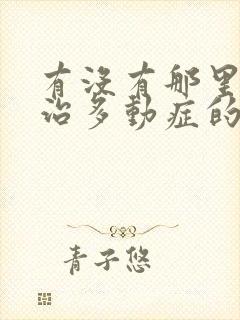 有没有那里
治多動症的
青子悠